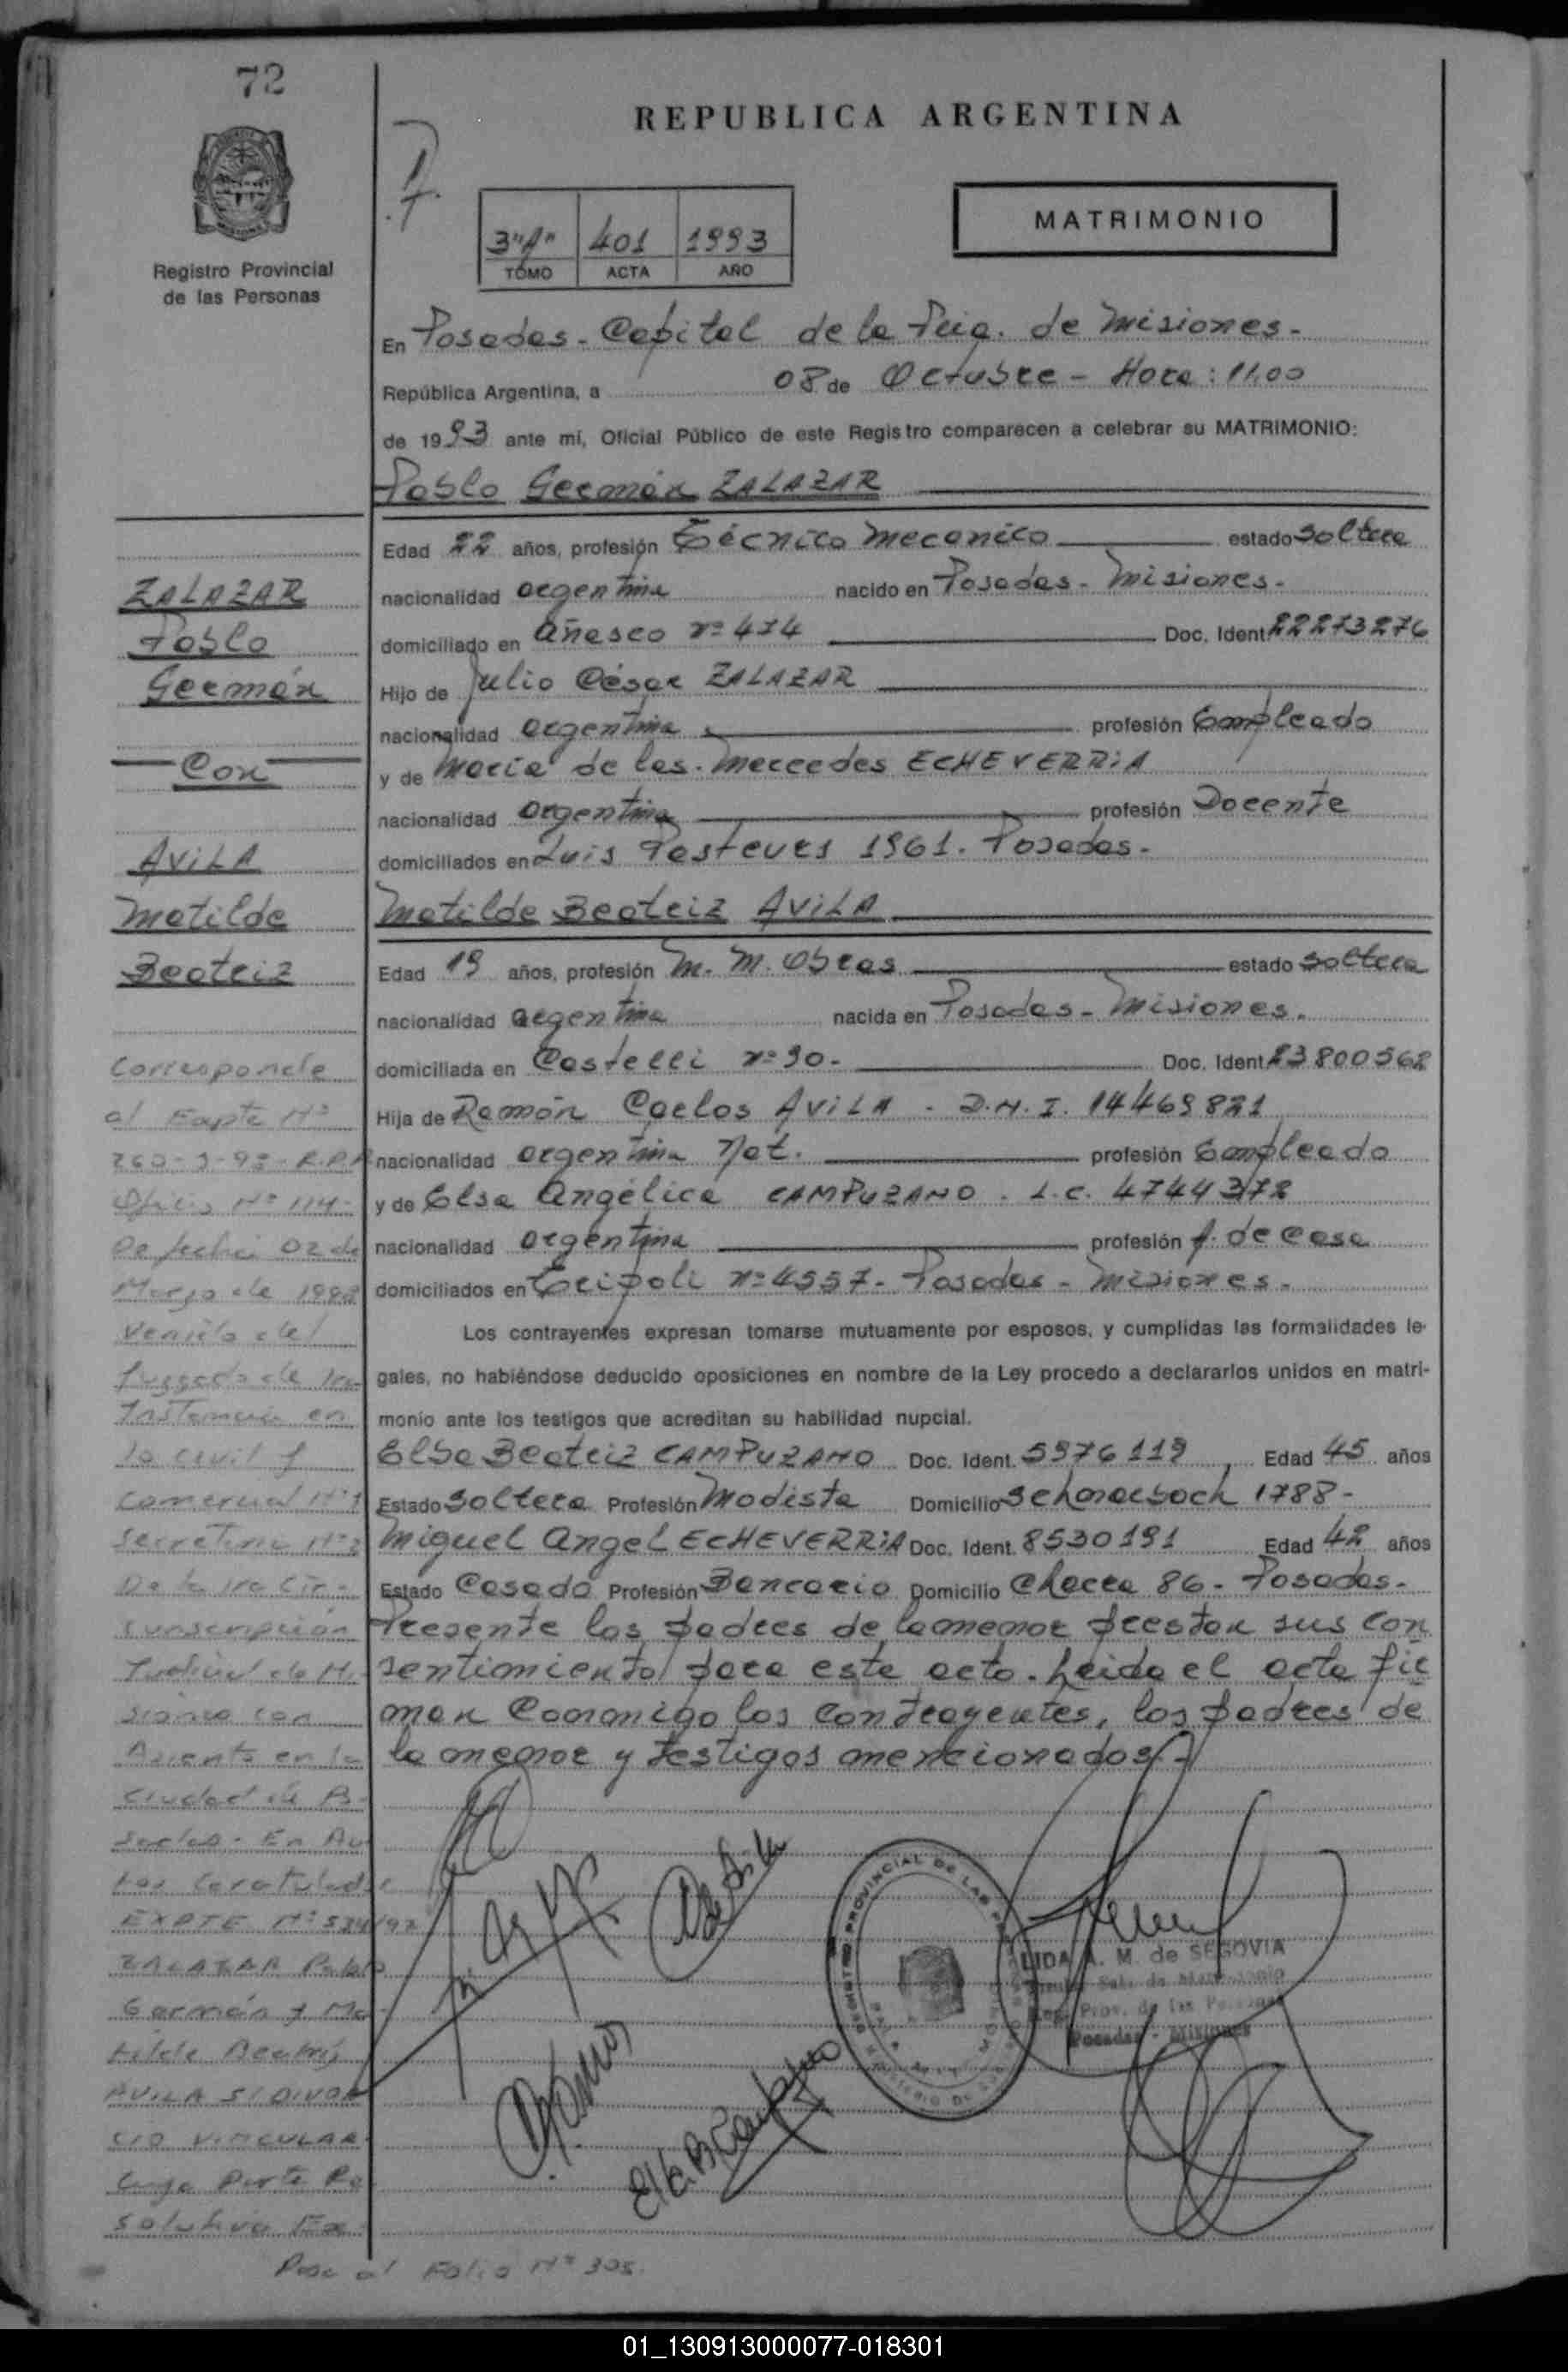 72
REPUBLICA ARGENTINA
Registro Provincial
de las Personas
3"A" 401 1993
TOMO ACTA AÑO
MATRIMONIO
En Posadas - Capital de la Pcia. de Misiones -
República Argentina, a 08 de Octubre - Hora: 11.00
de 1993 ante mí, Oficial Público de este Registro comparecen a celebrar su MATRIMONIO:
Pablo Germán ZALAZAR
Edad 22 años, profesión Técnico Mecanico estado soltero
nacionalidad argentina nacido en Posadas - Misiones -
domiciliado en Añasco nº 474 Doc. Ident. 22273276
Hijo de Julio César ZALAZAR
nacionalidad argentina profesión Empleado
y de Maria de las Mercedes ECHEVERRIA
nacionalidad argentina profesión Docente
domiciliados en Luis Pasteurs 1961. Posadas -
Matilde Beatriz AVILA
Edad 19 años, profesión M. M. Obras estado soltera
nacionalidad argentina nacida en Posadas - Misiones.
domiciliada en Castelli nº 90 - Doc. Ident. 23800562
Hija de Ramón Carlos AVILA - D.N.I. 14469821
nacionalidad argentina Nat. profesión Empleado
y de Elsa Angélica CAMPUZANO. L.C. 4744372
nacionalidad argentina profesión A. de Casa
domiciliados en Tripoli nº 4557 - Posadas - Misiones -
Los contrayentes expresan tomarse mutuamente por esposos, y cumplidas las formalidades le-
gales, no habiéndose deducido oposiciones en nombre de la Ley procedo a declararlos unidos en matri-
monio ante los testigos que acreditan su habilidad nupcial.
Elba Beatriz CAMPUZANO Doc. Ident. 5976119 Edad 45 años
Estado soltera Profesión Modista Domicilio 1788 -
Miguel Angel ECHEVERRIA Doc. Ident. 8530191 Edad 42 años
Estado Casado Profesión Bancario Domicilio Chacra 86 - Posadas -
Presente los padres de la menor prestan sus con
sentimiento para este acto. Leida el acta fir
man Conmigo los Contrayentes, los padres de
la menor y testigos mencionados. -
ZALAZAR
Pablo
Germán
Con
AVILA
Matilde
Beatriz
Corresponde
al Expte Nº
Oficio Nº 114 -
De fecha 02 de
Marzo de 1998
Venido del
Juzgado de 1ra
Instancia en
lo civil y
Comercial Nº 1
Secretaria Nº 2
De la 1ra Cir-
cunscripción
Judicial de Mi-
siones con
Asiento en la
Ciudad de Po-
sadas - En Au-
tos Caratulados
EXPTE Nº
ZALAZAR Pablo
Germán y Ma-
tilde Beatriz
AVILA S/ DIVOR
CIO VINCULAR
Cuya Parte Re
solutiva
Pasa al Folio Nº 305.
REGISTRO PROVINCIAL DE LAS
LIDA A. M. de SEGOVIA
Reg. Prov. de las Personas
Posadas - Misiones
01_130913000077-018301